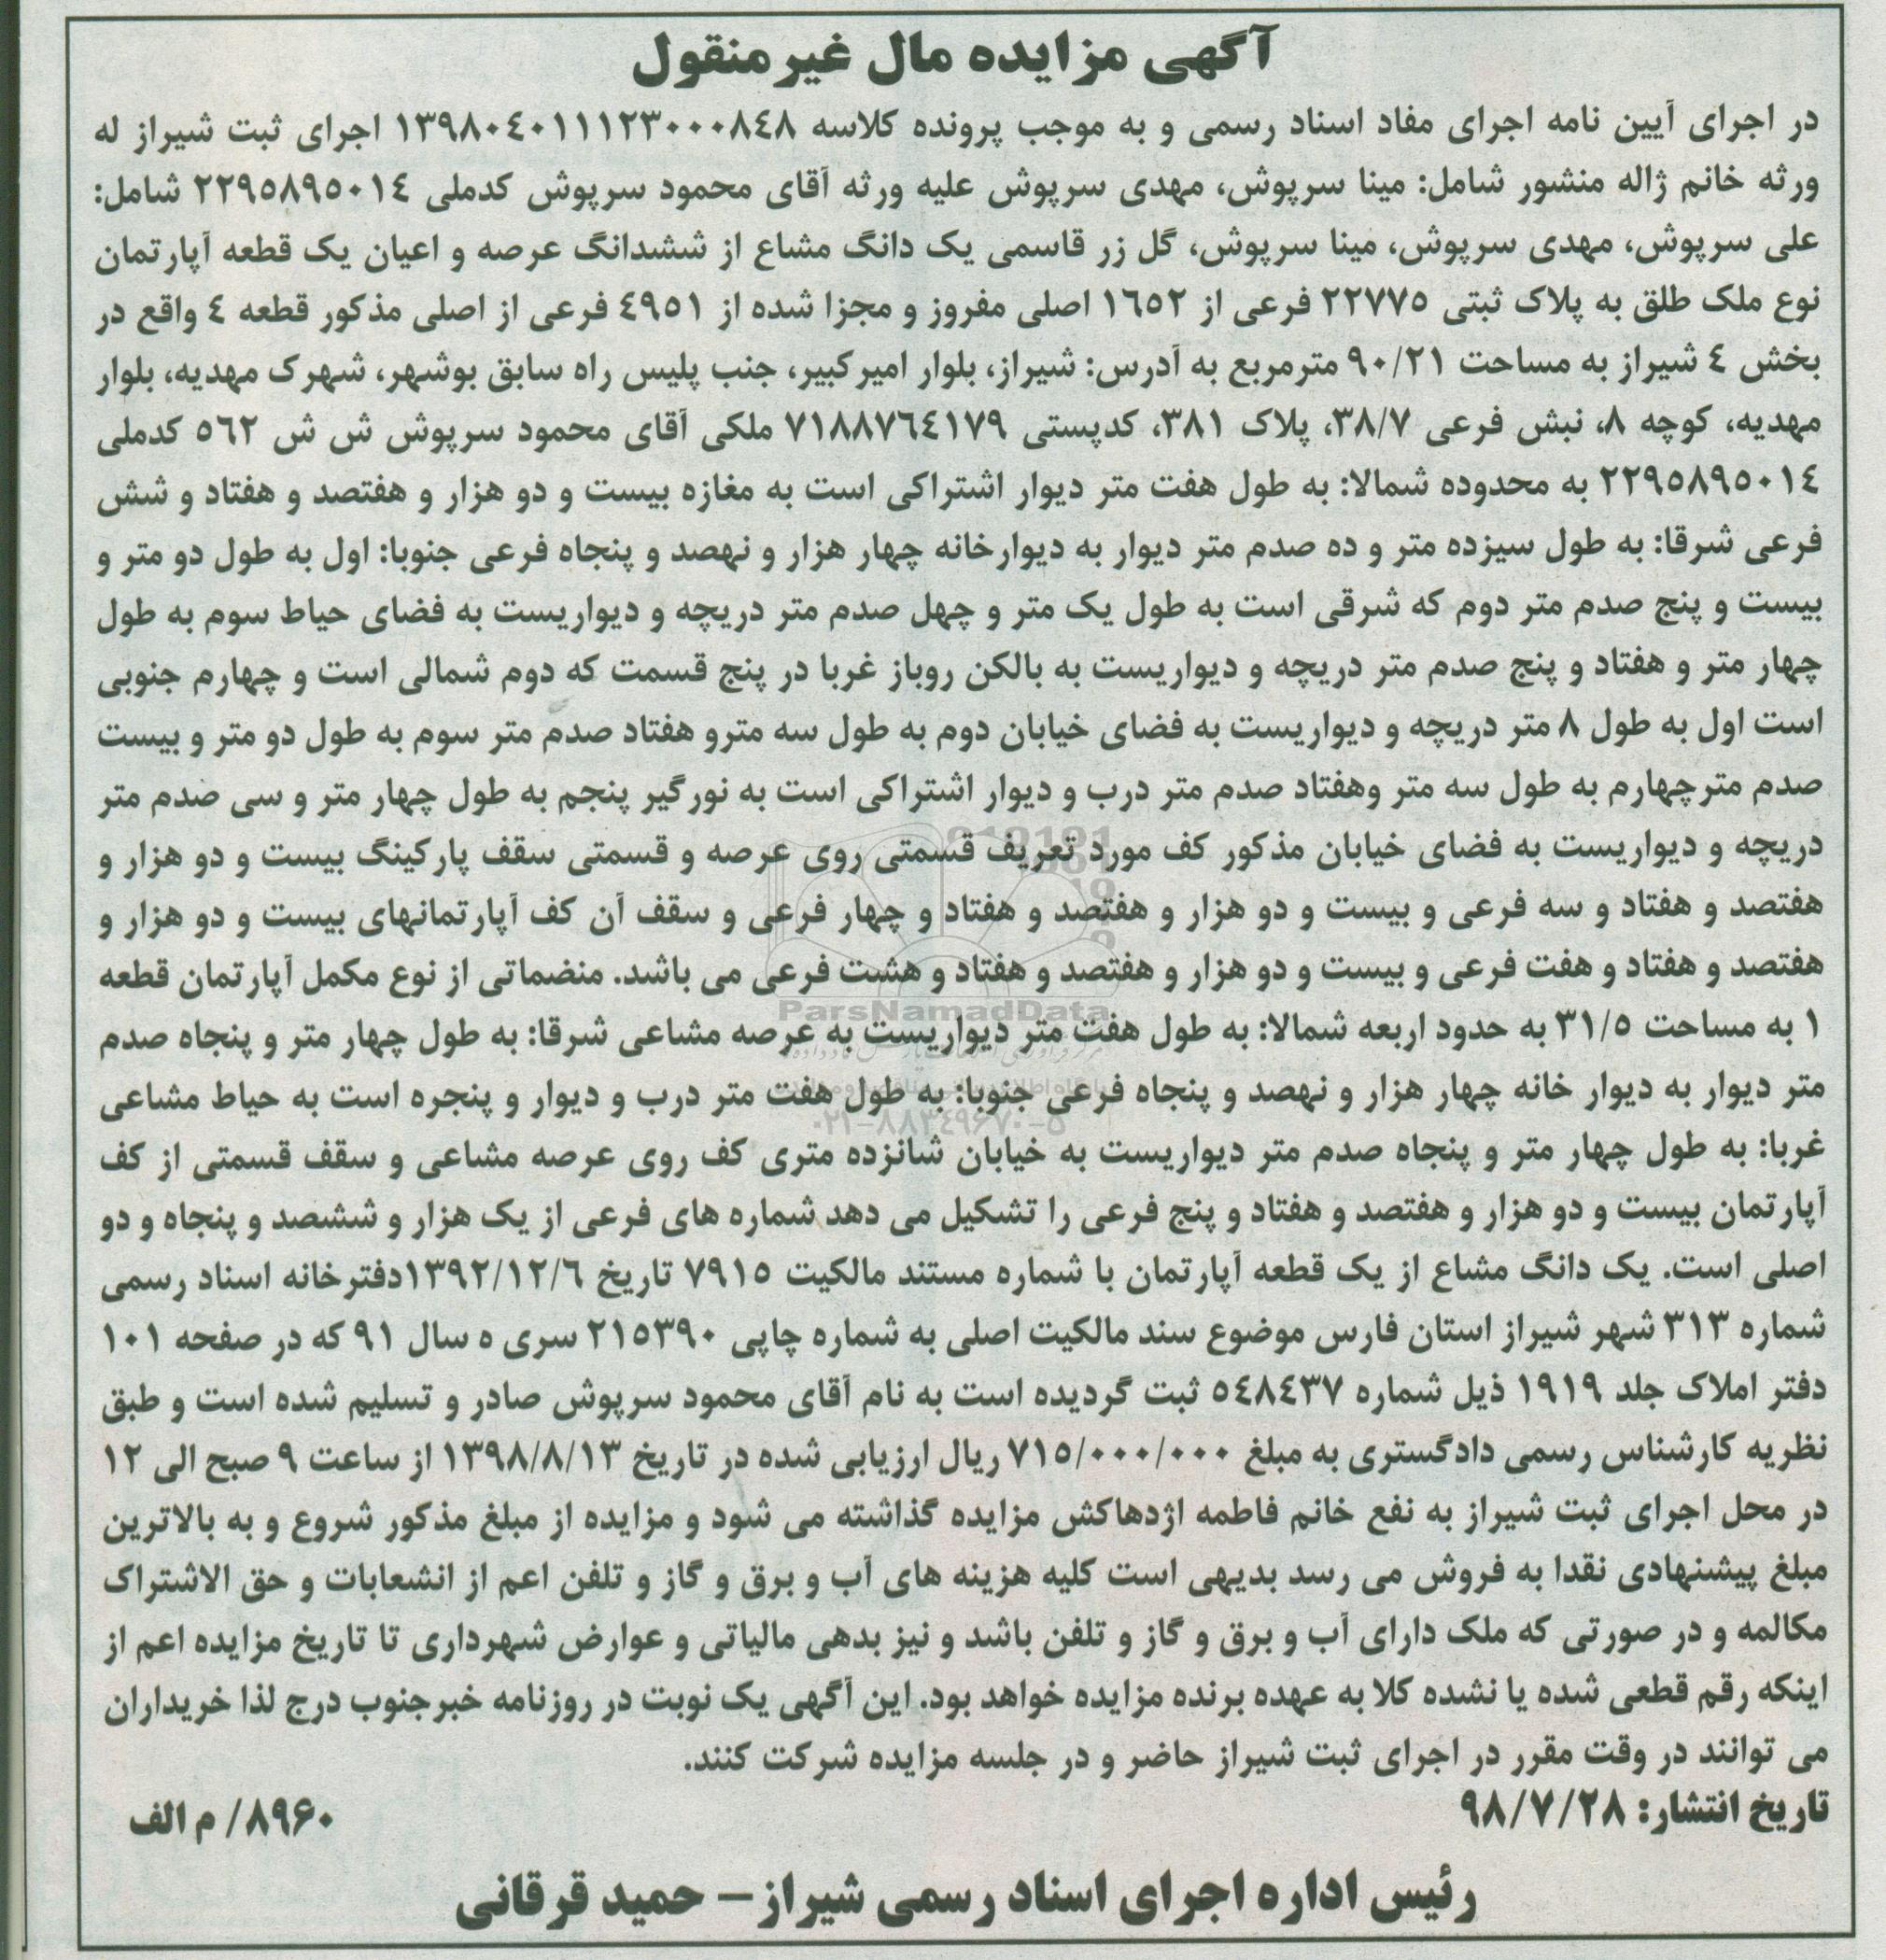 آگهی مزایده مال غیرمنقول
در اجرای آیین نامه اجرای مفاد اسناد رسمی و به موجب پرونده کلاسه ١٣٩٨٠٤٠١١١٢٣٠٠٠٨٤٨ اجرای ثبت شیراز له
ورثه خانم ژاله منشور شامل: مینا سرپوش، مهدی سرپوش علیه ورثه آقای محمود سرپوش کدملی ٢٢٩٥٨٩٥٠١٤ شامل:
علی سرپوش، مهدی سرپوش، مینا سرپوش، گل زر قاسمی یک دانگ مشاع از ششدانگ عرصه و اعیان یک قطعه آپارتمان
نوع ملک طلق به پلاک ثبتی ٢٢٧٧٥ فرعی از ١٦٥٢ اصلی مفروز و مجزا شده از ٤٩٥١ فرعی از اصلی مذکور قطعه ٤ واقع در
بخش ٤ شیراز به مساحت ٩٠/٢١ مترمربع به آدرس: شیراز، بلوار امیرکبیر، جنب پلیس راه سابق بوشهر، شهرک مهدیه، بلوار
مهدیه، کوچه ٨، نبش فرعی ٣٨/٧، پلاک ٣٨١، کدپستی ٧١٨٨٧٦٤١٧٩ ملکی آقای محمود سرپوش ش ش ٥٦٢ کدملی
٢٢٩٥٨٩٥٠١٤ به محدوده شمالا: به طول هفت متر دیوار اشتراکی است به مغازه بیست و دو هزار و هفتصد و هفتاد و شش
فرعی شرقا: به طول سیزده متر و ده صدم متر دیوار به دیوارخانه چهار هزار و نهصد و پنجاه فرعی جنوبا: اول به طول دو متر و
بیست و پنج صدم متر دوم که شرقی است به طول یک متر و چهل صدم متر دریچه و دیواریست به فضای حیاط سوم به طول
چهار متر و هفتاد و پنج صدم متر دریچه و دیواریست به بالکن روباز غربا در پنج قسمت که دوم شمالی است و چهارم جنوبی
است اول به طول ٨ متر دریچه و دیواریست به فضای خیابان دوم به طول سه مترو هفتاد صدم متر سوم به طول دو متر و بیست
صدم مترچهارم به طول سه متر وهفتاد صدم متر درب و دیوار اشتراکی است به نورگیر پنجم به طول چهار متر و سی صدم متر
دریچه و دیواریست به فضای خیابان مذکور کف مورد تعریف قسمتی روی عرصه و قسمتی سقف پارکینگ بیست و دو هزار و
هفتصد و هفتاد و سه فرعی و بیست و دو هزار و هفتصد و هفتاد و چهار فرعی و سقف آن کف آپارتمانهای بیست و دو هزار و
هفتصد و هفتاد و هفت فرعی و بیست و دو هزار و هفتصد و هفتاد و هشت فرعی می باشد. منضماتی از نوع مکمل آپارتمان قطعه
ParsNamadData
١ به مساحت ٣١/٥ به حدود اربعه شمالا: به طول هفت متر دیواریست به عرصه مشاعی شرقا: به طول چهار متر و پنجاه صدم
متر دیوار به دیوار خانه چهار هزار و نهصد و پنجاه فرعی جنوبا: به طول هفت متر درب و دیوار و پنجره است به حیاط مشاعی
۰۲۱-۸۸۳۴۹۶۷۰-۵
غربا: به طول چهار متر و پنجاه صدم متر دیواریست به خیابان شانزده متری کف روی عرصه مشاعی و سقف قسمتی از کف
آپارتمان بیست و دو هزار و هفتصد و هفتاد و پنج فرعی را تشکیل می دهد شماره های فرعی از یک هزار و ششصد و پنجاه و دو
اصلی است. یک دانگ مشاع از یک قطعه آپارتمان با شماره مستند مالکیت ٧٩١٥ تاریخ ١٣٩٢/١٢/٦دفترخانه اسناد رسمی
شماره ٣١٣ شهر شیراز استان فارس موضوع سند مالکیت اصلی به شماره چاپی ٢١٥٣٩٠ سری ه سال ٩١ که در صفحه ١٠١
دفتر املاک جلد ١٩١٩ ذیل شماره ٥٤٨٤٣٧ ثبت گردیده است به نام آقای محمود سرپوش صادر و تسلیم شده است و طبق
نظریه کارشناس رسمی دادگستری به مبلغ ٧١٥/٠٠٠/٠٠٠ ریال ارزیابی شده در تاریخ ١٣٩٨/٨/١٣ از ساعت ٩ صبح الی ١٢
در محل اجرای ثبت شیراز به نفع خانم فاطمه اژدهاکش مزایده گذاشته می شود و مزایده از مبلغ مذکور شروع و به بالاترین
مبلغ پیشنهادی نقدا به فروش می رسد بدیهی است کلیه هزینه های آب و برق و گاز و تلفن اعم از انشعابات و حق الاشتراک
مکالمه و در صورتی که ملک دارای آب و برق و گاز و تلفن باشد و نیز بدهی مالیاتی و عوارض شهرداری تا تاریخ مزایده اعم از
اینکه رقم قطعی شده یا نشده کلا به عهده برنده مزایده خواهد بود. این آگهی یک نوبت در روزنامه خبرجنوب درج لذا خریداران
می توانند در وقت مقرر در اجرای ثبت شیراز حاضر و در جلسه مزایده شرکت کنند.
تاریخ انتشار: ۹۸/۷/۲۸
۸۹۶۰/ م الف
رئیس اداره اجرای اسناد رسمی شیراز – حمید قرقانی